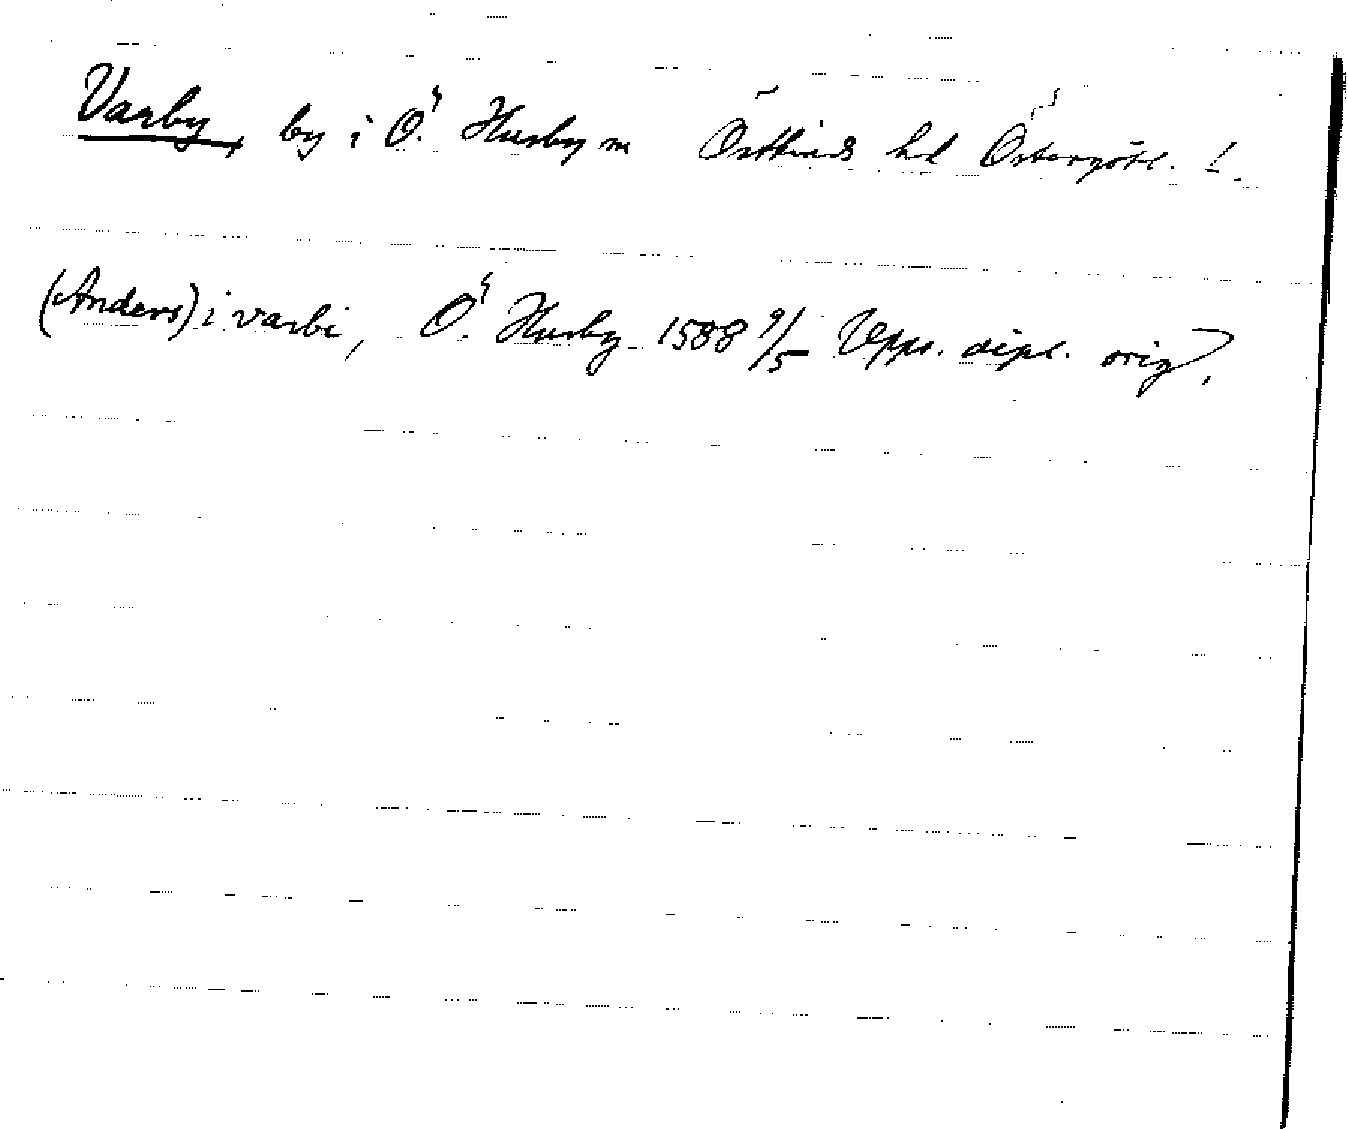 Varby, by i Ö. Husby sn Östkinds hd Östergötl. l.
(Anders) i varbi, Ö. Husby 1588 9/5 Upps. dipl. orig.